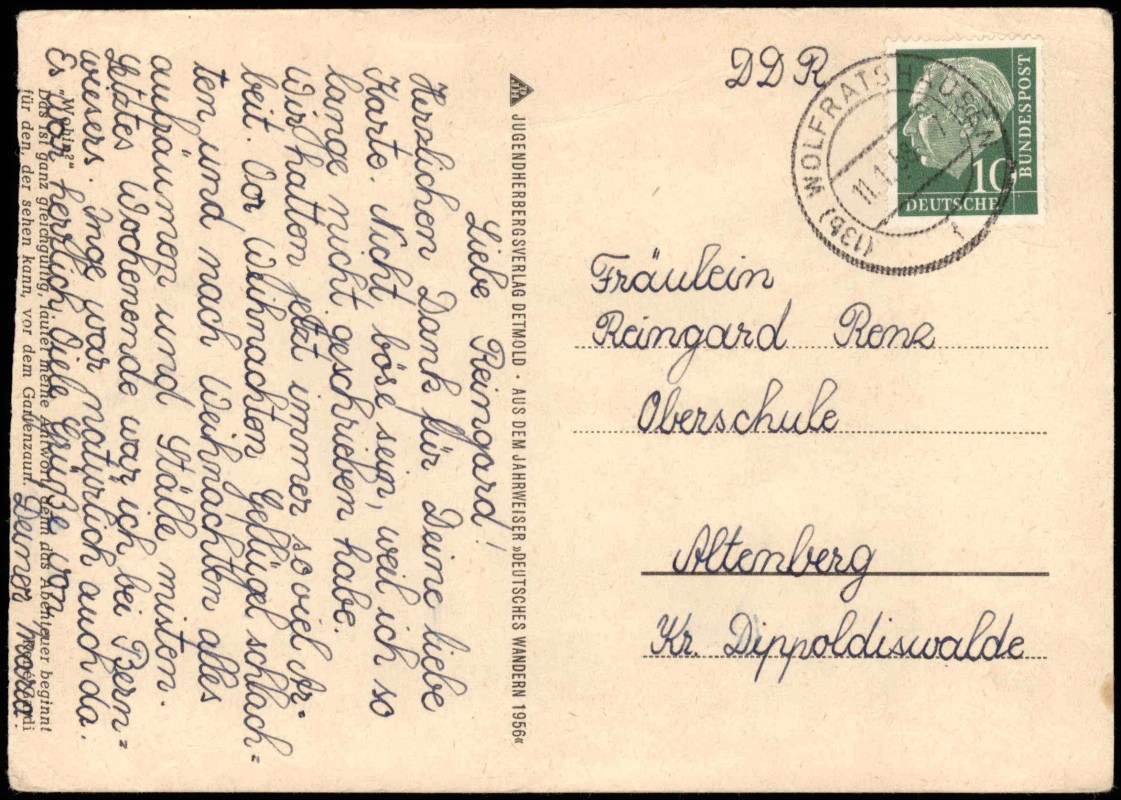 Liebe Reingard!
Herzlichen Dank für Deine liebe
Karte. Nicht böse sein, weil ich so
lange nicht geschrieben habe.
Wir hatten jetzt immer so viel Ar-
beit. Vor Weihnachten Geflügel schlach=
ten und nach Weihnachten alles
aufräumen und Ställe misten.
Letztes Wochenende war ich bei Bern=
wiesers. Inge war natürlich auch da.
Es war herrlich. Viele Grüße von
Deiner
"Wohin?"
Das ist ganz gleichgültig, lautet meine Antwort, denn das Abenteuer beginnt
für den, der sehen kann, vor dem Gartenzaun.
JUGENDHERBERGSVERLAG DETMOLD · AUS DEM JAHRWEISER »DEUTSCHES WANDERN 1956«
DDR
(13b) WOLFRATSHAUSEN
11.1.
1
10
DEUTSCHE
BUNDESPOST
Fräulein
Reingard Renz
Oberschule
Altenberg
Kr. Dippoldiswalde